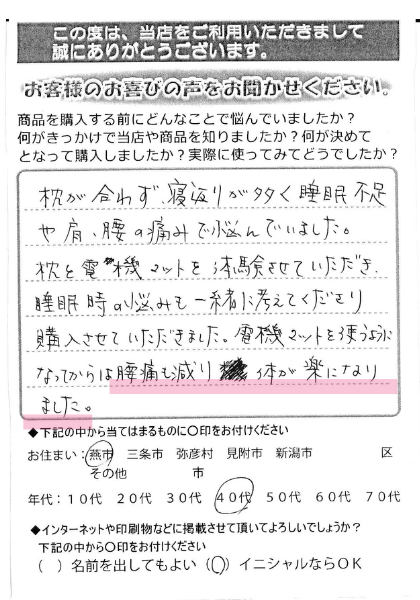 この度は、当店をご利用いただきまして
誠にありがとうございます。
お客様のお喜びの声をお聞かせください。
商品を購入する前にどんなことで悩んでいましたか？
何がきっかけで当店や商品を知りましたか？何が決めて
となって購入しましたか？実際に使ってみてどうでしたか？
枕が合わず、寝返りが多く睡眠不足
や肩、腰の痛みで悩んでいました。
枕と電機マットを体験させていただき、
睡眠時の悩みも一緒に考えてくださり
購入させていただきました。電機マットを使うように
なってからは腰痛も減り 体が楽になり
ました。
◆下記の中から当てはまるものに〇印をお付けください
お住まい：燕市 三条市 弥彦村 見附市 新潟市 区
その他 市
年代：１０代 ２０代 ３０代 ４０代 ５０代 ６０代 ７０代
◆インターネットや印刷物などに掲載させて頂いてよろしいでしょうか？
下記の中から〇印をお付けください
（ ）名前を出してもよい（〇）イニシャルならＯＫ